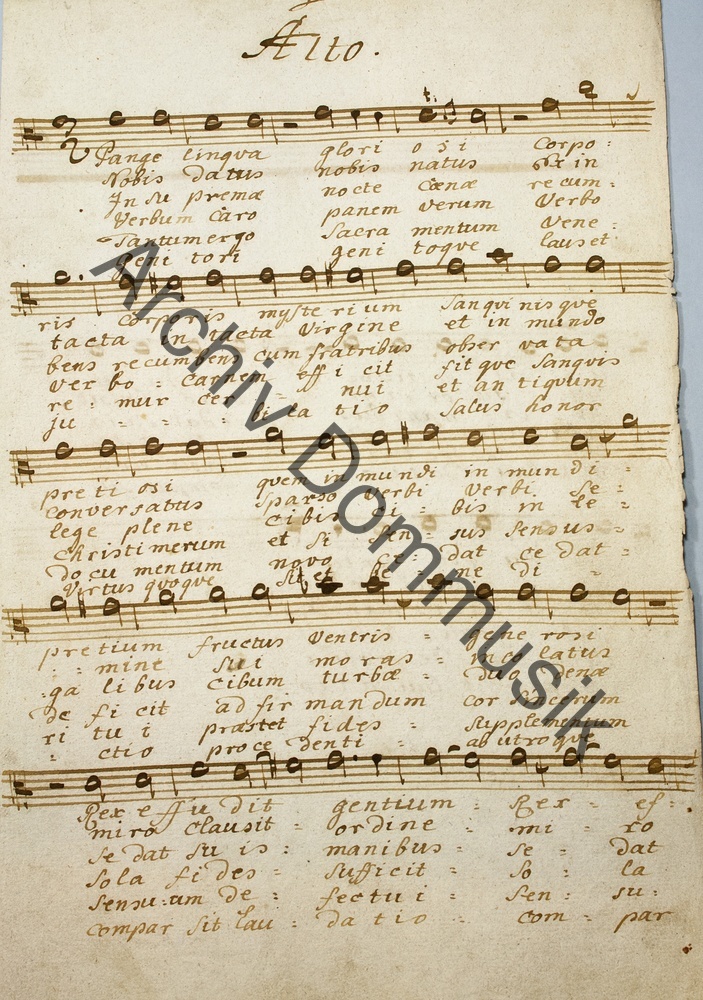 Alto.
Pange lingva glori o si Corpo:
Nobis datus nobis natus in
In su premæ nocte Cœnæ re cum:
Verbum Caro panem verum Verbo
Tantum ergo Sacra mentum Vene:
Geni tori geni toqve laus et
ris Corporis myste rium Sangvi nis qve
tacta in tacta Virgine et in mundo
bens recumbens cum fratribus ober vata
ver bo : Carnem eff i cit fit qve Sangvis
re : mur Cer nui et an tiqvum
ju - bi la ti o Salus honor
pre ti osi qvem in mundi in mun di :
conversatus Sparso Verbi Verbi Se :
lege plene Cibis Ci - bis in le :
Christi merum et Si Sen : sus Sensus :
do cu mentum novo Ce : dat ce dat :
Virtus qvoqve Sit et be : ne di :
pretium fructus Ventris : gene rosi
: mine Su i mo ras : in co latus
:ga li bus Cibum turbæ : duo denæ
de fi cit ad fir mandum cor Sincerum
ri tu i præstet fides : Supplementum
: ctio proce denti : ab utro qve
Rex e ffu dit gentium : Rex : ef:
miro Clausit : or dine : mi : ro
se dat su is : manibus : se : dat
Sola fi des : Sufficit : So : la
Sensu:um de : fectu i : Sen : su:
Compar Sit lau : da ti o : Com : par
Archiv Dommusik